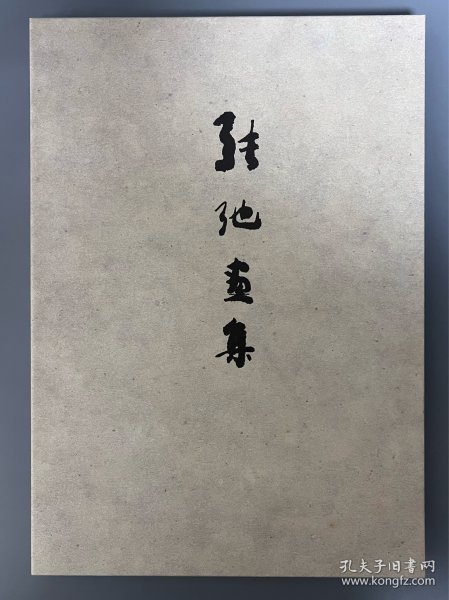 张弛画集
孔夫子旧书网
www.kongfz.com